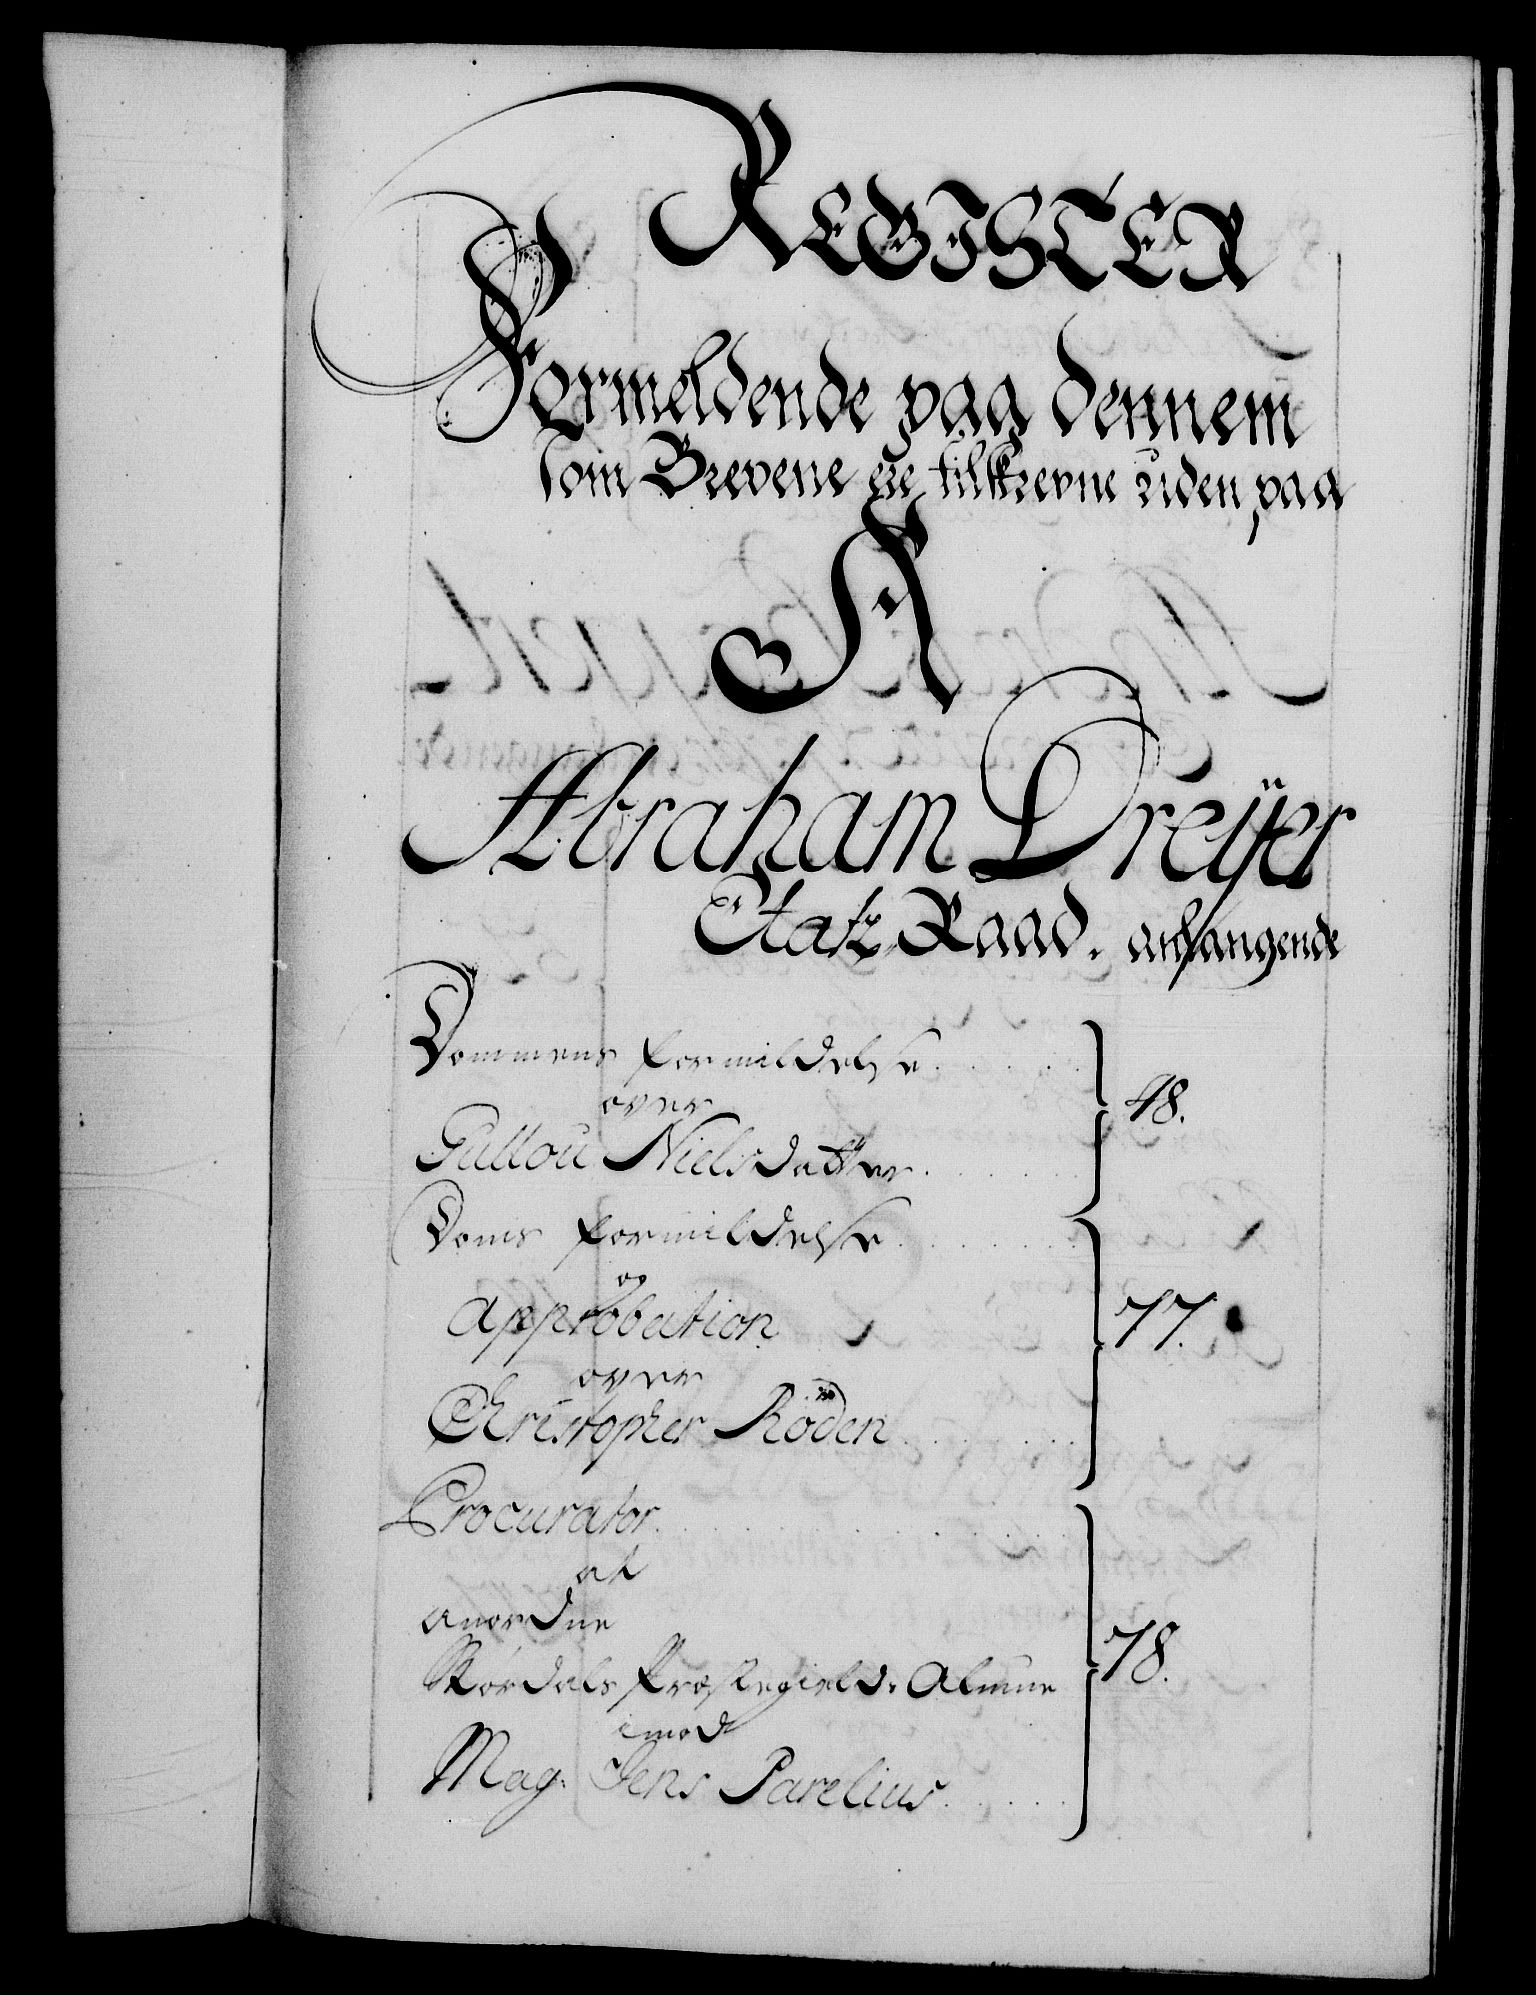 REGISTER
Formeldende paa dennem
som Brevene ere tilskrevne uden paa
A
Abraham Dreÿer
Etatz Raad. anlangende
Dommens formildelse
over
Gullou Nielsdatter
48.
Doms formildelse
og
approbation
over
Christopher Röden
77.
Procurator
at
anordne
Størdals Præstegields Almue
imod
Mag. Jens Parelius
78.